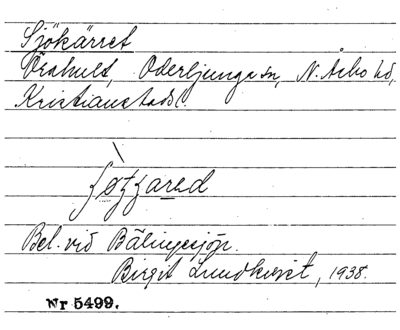 Sjökärret
Örahult, Oderljunga sn, N. Åsbo hd,
Kristianstads l.
Bel. vid Bälingesjön.
Birgit Lundkvist, 1938.
Nr 5499.